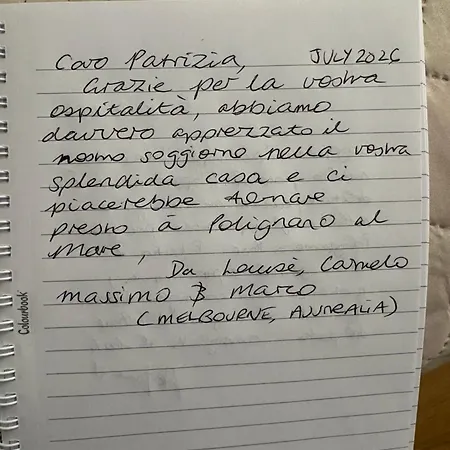 Caro Patrizia, JULY 2026
Grazie per la vostra
ospitalità, abbiamo
davvero apprezzato il
nostro soggiorno nella vostra
splendida casa e ci
piacerebbe tornare
presto à Polignano al
Mare,
Da Louisè, Carmelo
massimo & Marco
(MELBOURNE, AUSTRALIA)
Colourbook